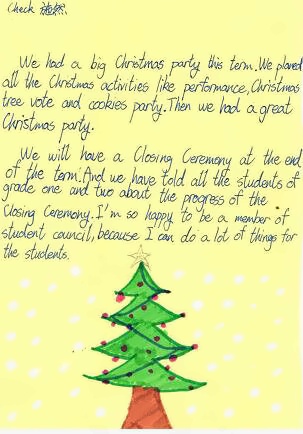 Check 施然
We had a big Christmas party this term. We planed
all the Christmas activities like performance, Christmas
tree vote and cookies party. Then we had a great
Christmas party.
We will have a Closing Ceremony at the end
of the term. And we have told all the students of
grade one and two about the progress of the
Closing Ceremony. I'm so happy to be a member of
student council, because I can do a lot of things for
the students.